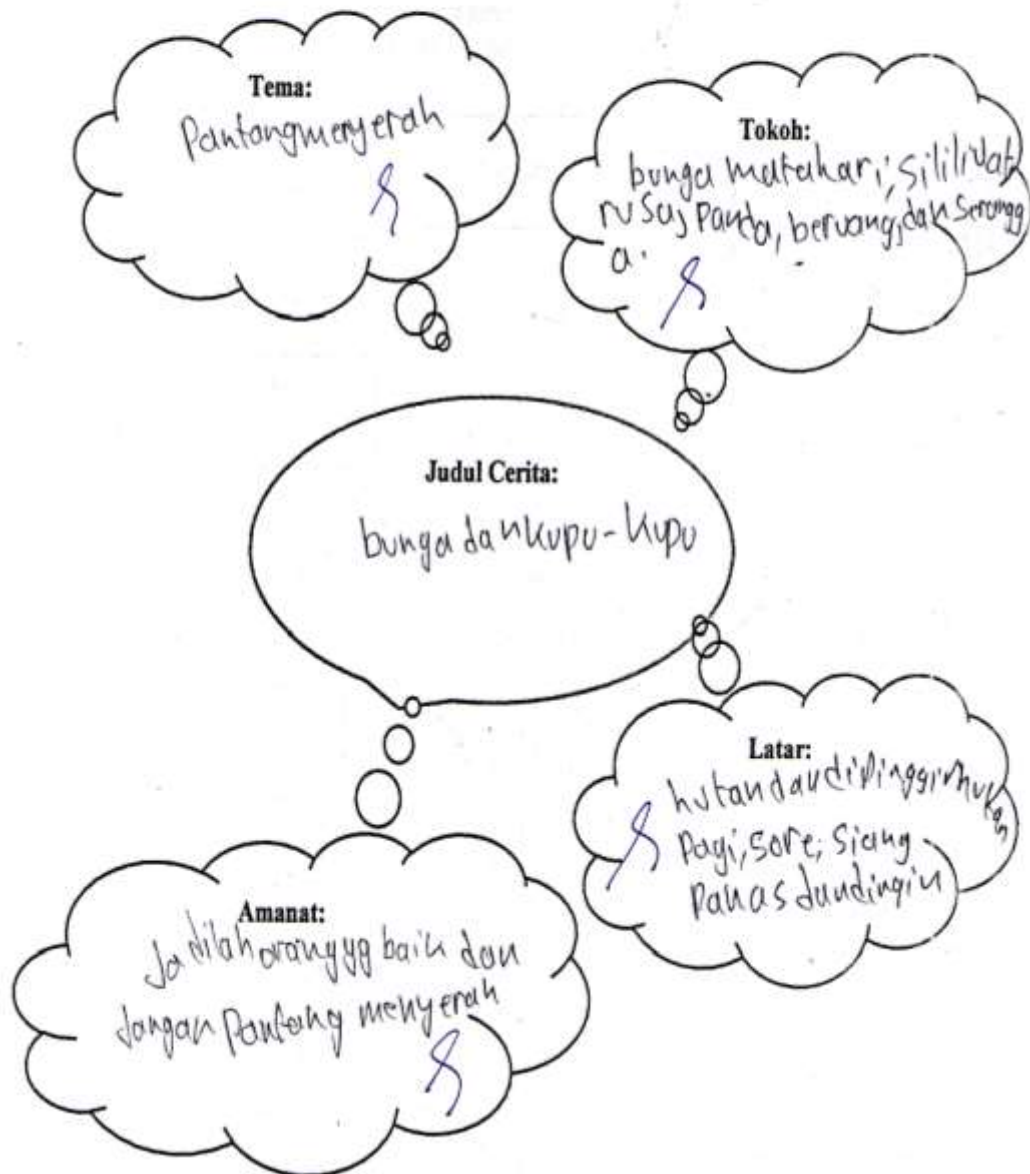 Tema:
Pantang menyerah
Tokoh:
bunga matahari, si lilidah
rusa, Panda, beruang, dan serangg
a.
Judul Cerita:
bunga dan kupu-kupu
Latar:
hutan dan dipinggir hutan
Pagi, sore, siang
Panas dan dingin
Amanat:
Jadilah orang yg baik dan
Jangan Pantang menyerah